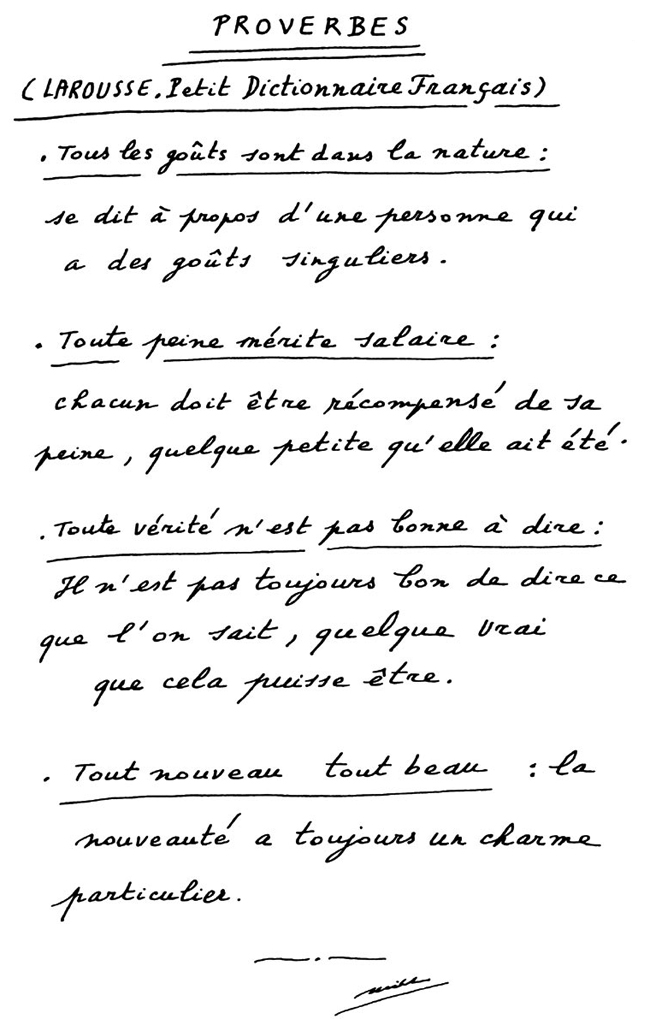 PROVERBES
(LAROUSSE. Petit Dictionnaire Français)
. Tous les goûts sont dans la nature :
se dit à propos d'une personne qui
a des goûts singuliers.
. Toute peine mérite salaire :
chacun doit être récompensé de sa
peine, quelque petite qu'elle ait été.
. Toute vérité n'est pas bonne à dire :
Il n'est pas toujours bon de dire ce
que l'on sait, quelque vrai
que cela puisse être.
. Tout nouveau tout beau : la
nouveauté a toujours un charme
particulier.